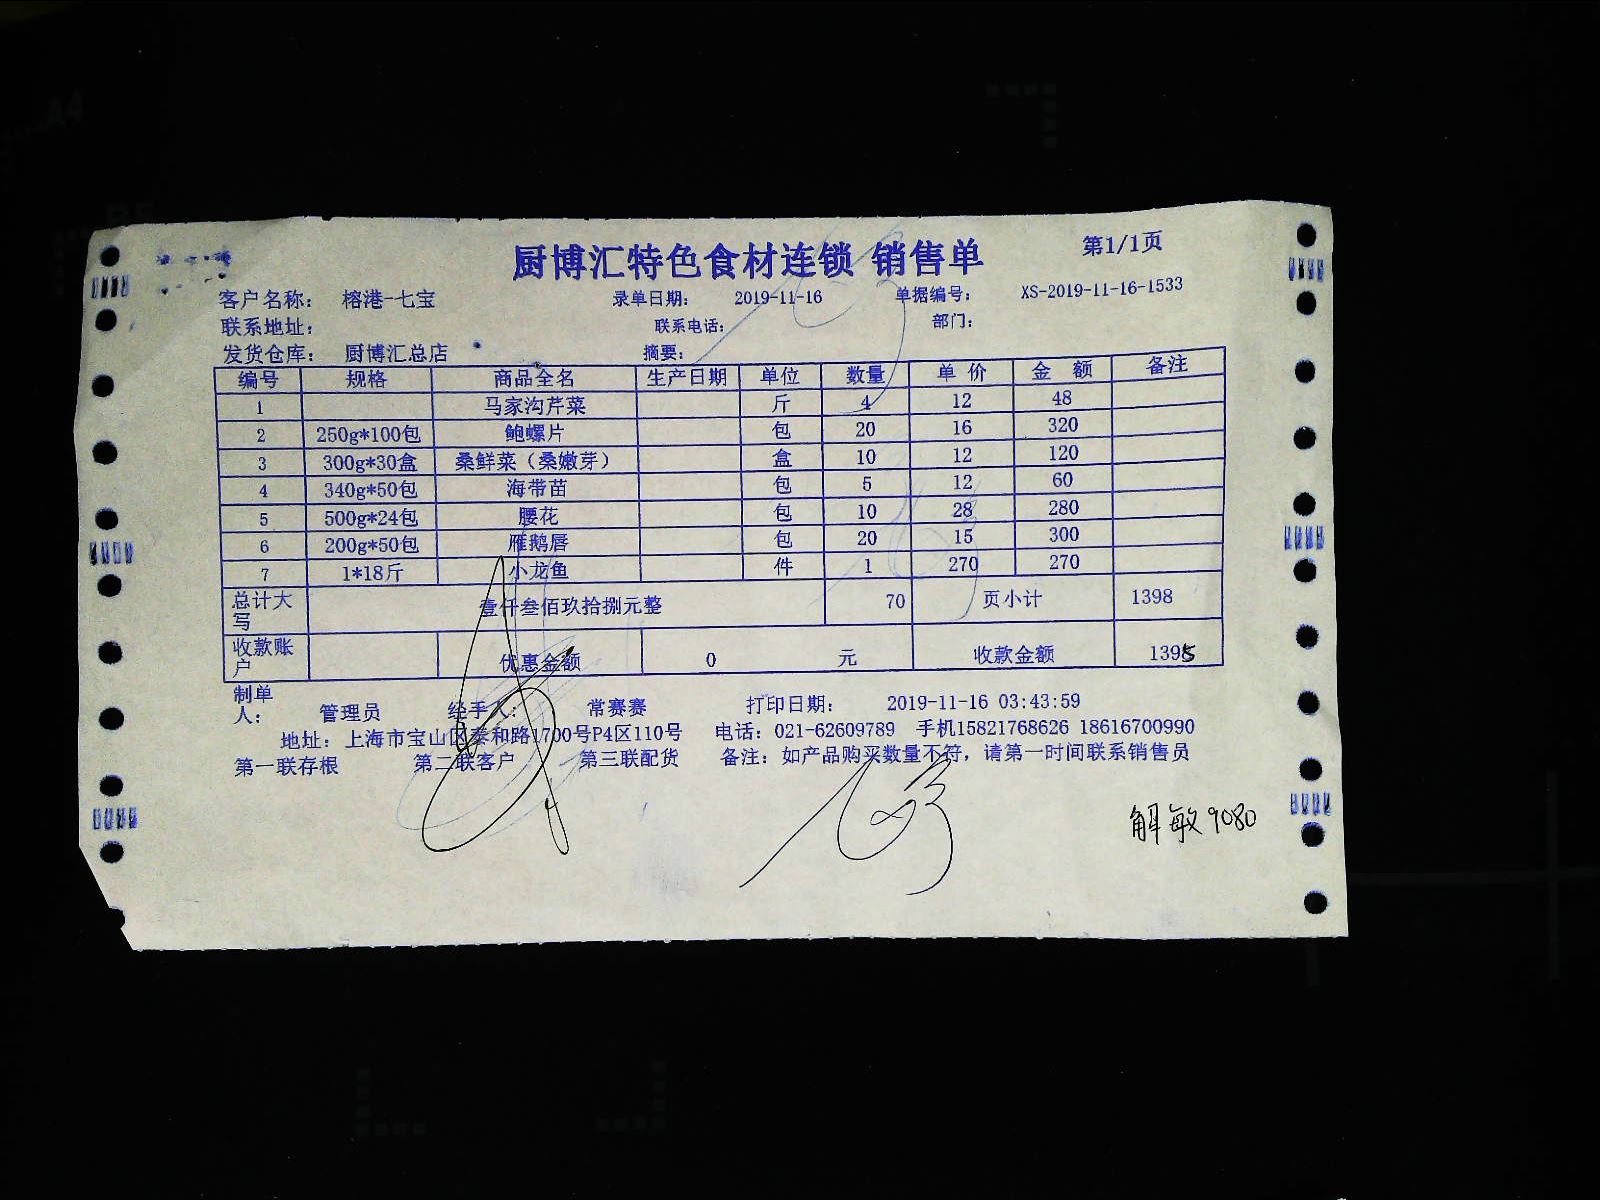 厨博汇特色食材连锁 销售单 第1/1页
客户名称: 榕港-七宝 录单日期: 2019-11-16 单据编号: XS-2019-11-16-1533
联系地址: 联系电话: 部门:
发货仓库: 厨博汇总店 摘要:
编号 规格 商品全名 生产日期 单位 数量 单 价 金 额 备注
1 马家沟芹菜 斤 4 12 48
2 250g*100包 鲍螺片 包 20 16 320
3 300g*30盒 桑鲜菜（桑嫩芽） 盒 10 12 120
4 340g*50包 海带苗 包 5 12 60
5 500g*24包 腰花 包 10 28 280
6 200g*50包 雁鹅唇 包 20 15 300
7 1*18斤 小龙鱼 件 1 270 270
总计大写 壹仟叁佰玖拾捌元整 70 页小计 1398
收款账户 优惠金额 0 元 收款金额 1395
制单人: 管理员 经手人: 常赛赛 打印日期: 2019-11-16 03:43:59
地址: 上海市宝山区泰和路1700号P4区110号 电话: 021-62609789 手机15821768626 18616700990
第一联存根 第二联客户 第三联配货 备注: 如产品购买数量不符, 请第一时间联系销售员
解敏9080